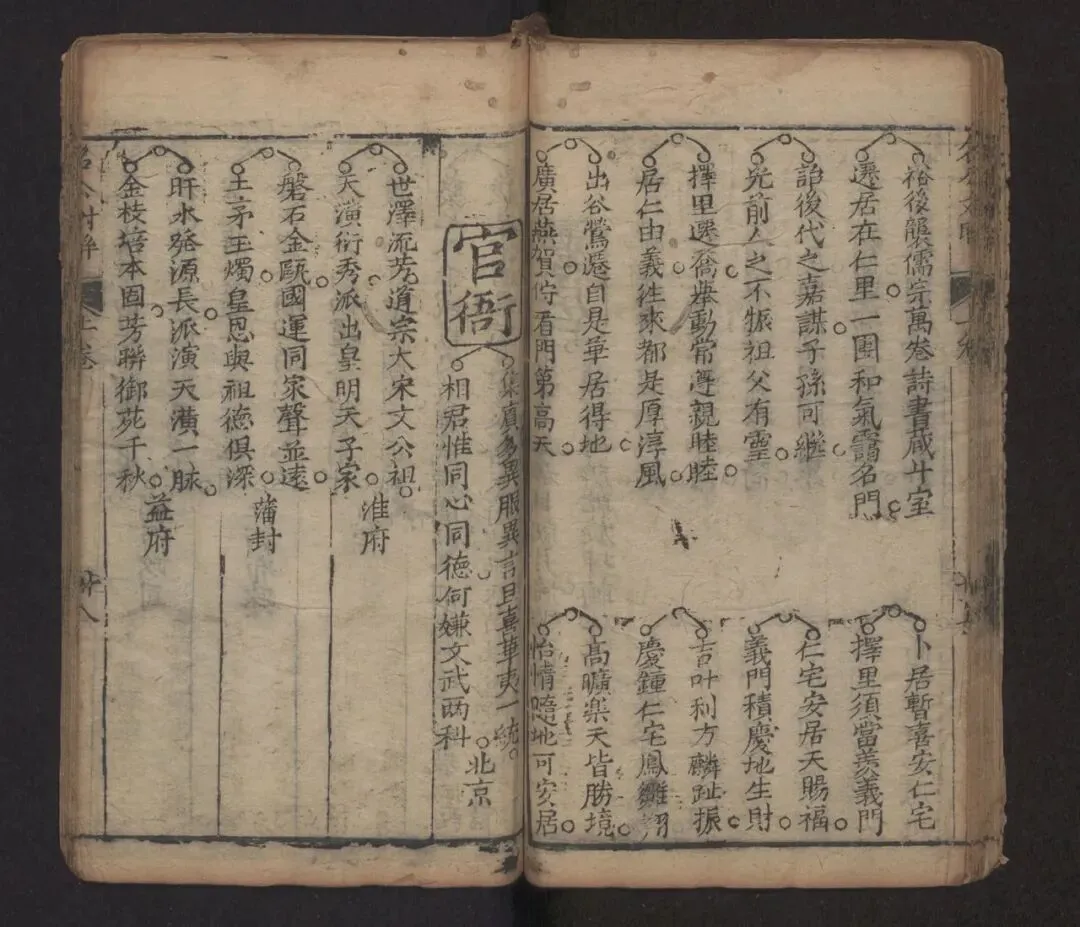 裕後襲儒宗萬卷詩書藏斗室
遷居在仁里一團和氣靄名門
詒後代之嘉謀子孫可繼
光前人之不振祖父有靈
擇里遷喬舉動常遵親睦睦
居仁由義徃來都是厚淳風
出谷鶯遷自是華居得地
廣居燕賀佇看門第高天
卜居暫喜安仁宅
擇里須當羨義門
仁宅安居天賜福
義門積慶地生財
吉叶利方麟趾振
慶鍾仁宅鳳雛翔
高曠樂天皆勝境
怡情隨地可安居
官衙
集真多異服異言且喜華夷一統
相君惟同心同德何嫌文武两科
北京
世澤流芳道宗大宋文公祖
天潢衍秀派出皇明天子家
淮府
磐石金甌國運同家聲並遠
土茅玉燭皇恩與祖德俱深
藩封
盱水發源長派演天潢一脉
金枝培本固芳聯御苑千秋
益府
上卷
廿八